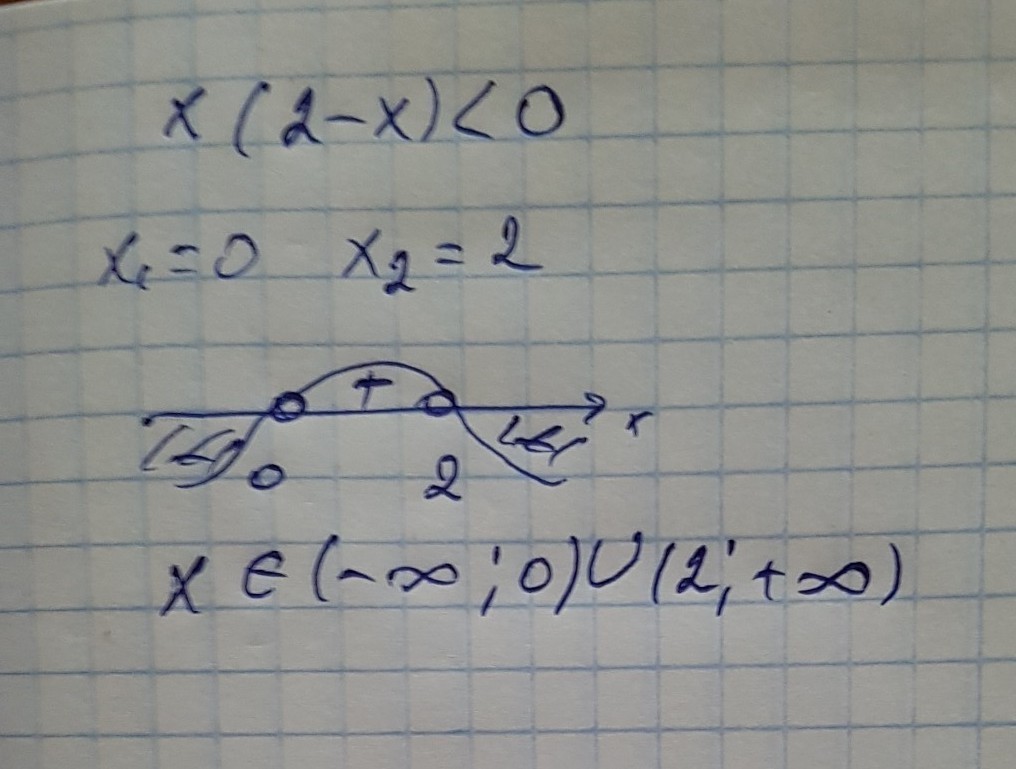 x(2-x)<0
x₁=0 x₂=2
+
x
0 2
x ∈ (-∞;0)∪(2;+∞)